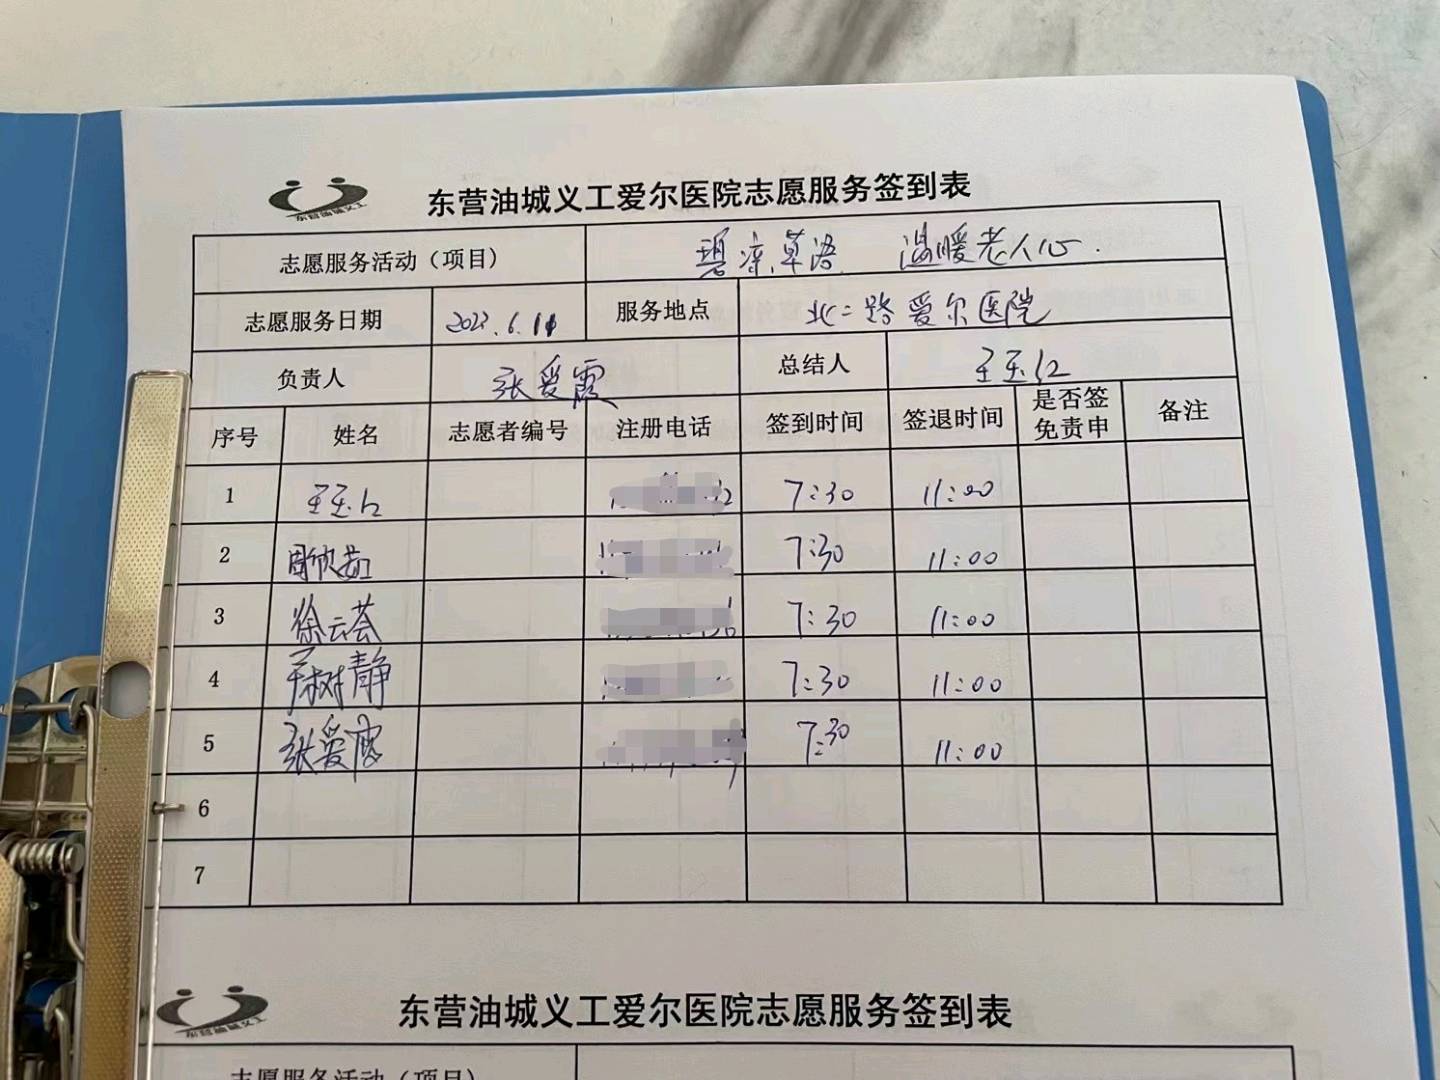 东营油城义工
东营油城义工爱尔医院志愿服务签到表
志愿服务活动（项目） 温暖老人心.
志愿服务日期 2023.6.11 服务地点 北二路爱尔医院
负责人 张爱霞 总结人 王玉红
序号 姓名 志愿者编号 注册电话 签到时间 签退时间 是否签免责申 备注
1 王玉红 7:30 11:00
2 7:30 11:00
3 徐云荟 7:30 11:00
4 树静 7:30 11:00
5 张爱霞 7:30 11:00
6
7
东营油城义工
东营油城义工爱尔医院志愿服务签到表
志愿服务活动（项目）